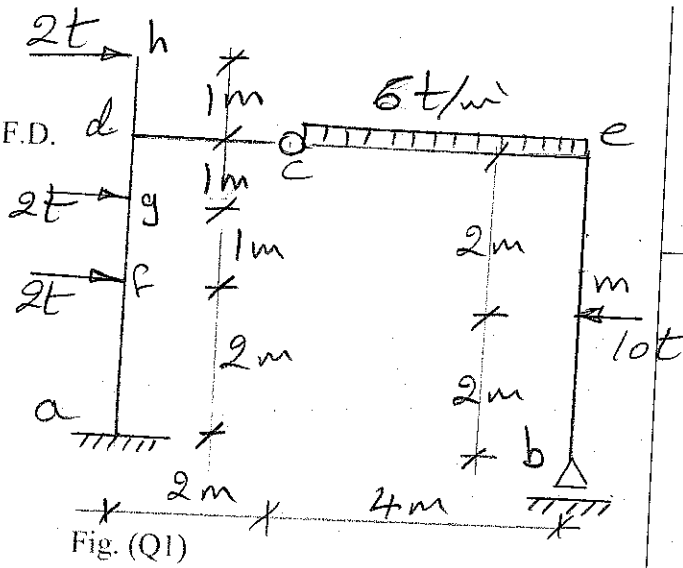 2t h
1m
6t/m'
F.D. d
e
c
1m
2t g
1m
2m
2t f
m
10t
2m
2m
a
b
2m
4m
Fig. (Q1)